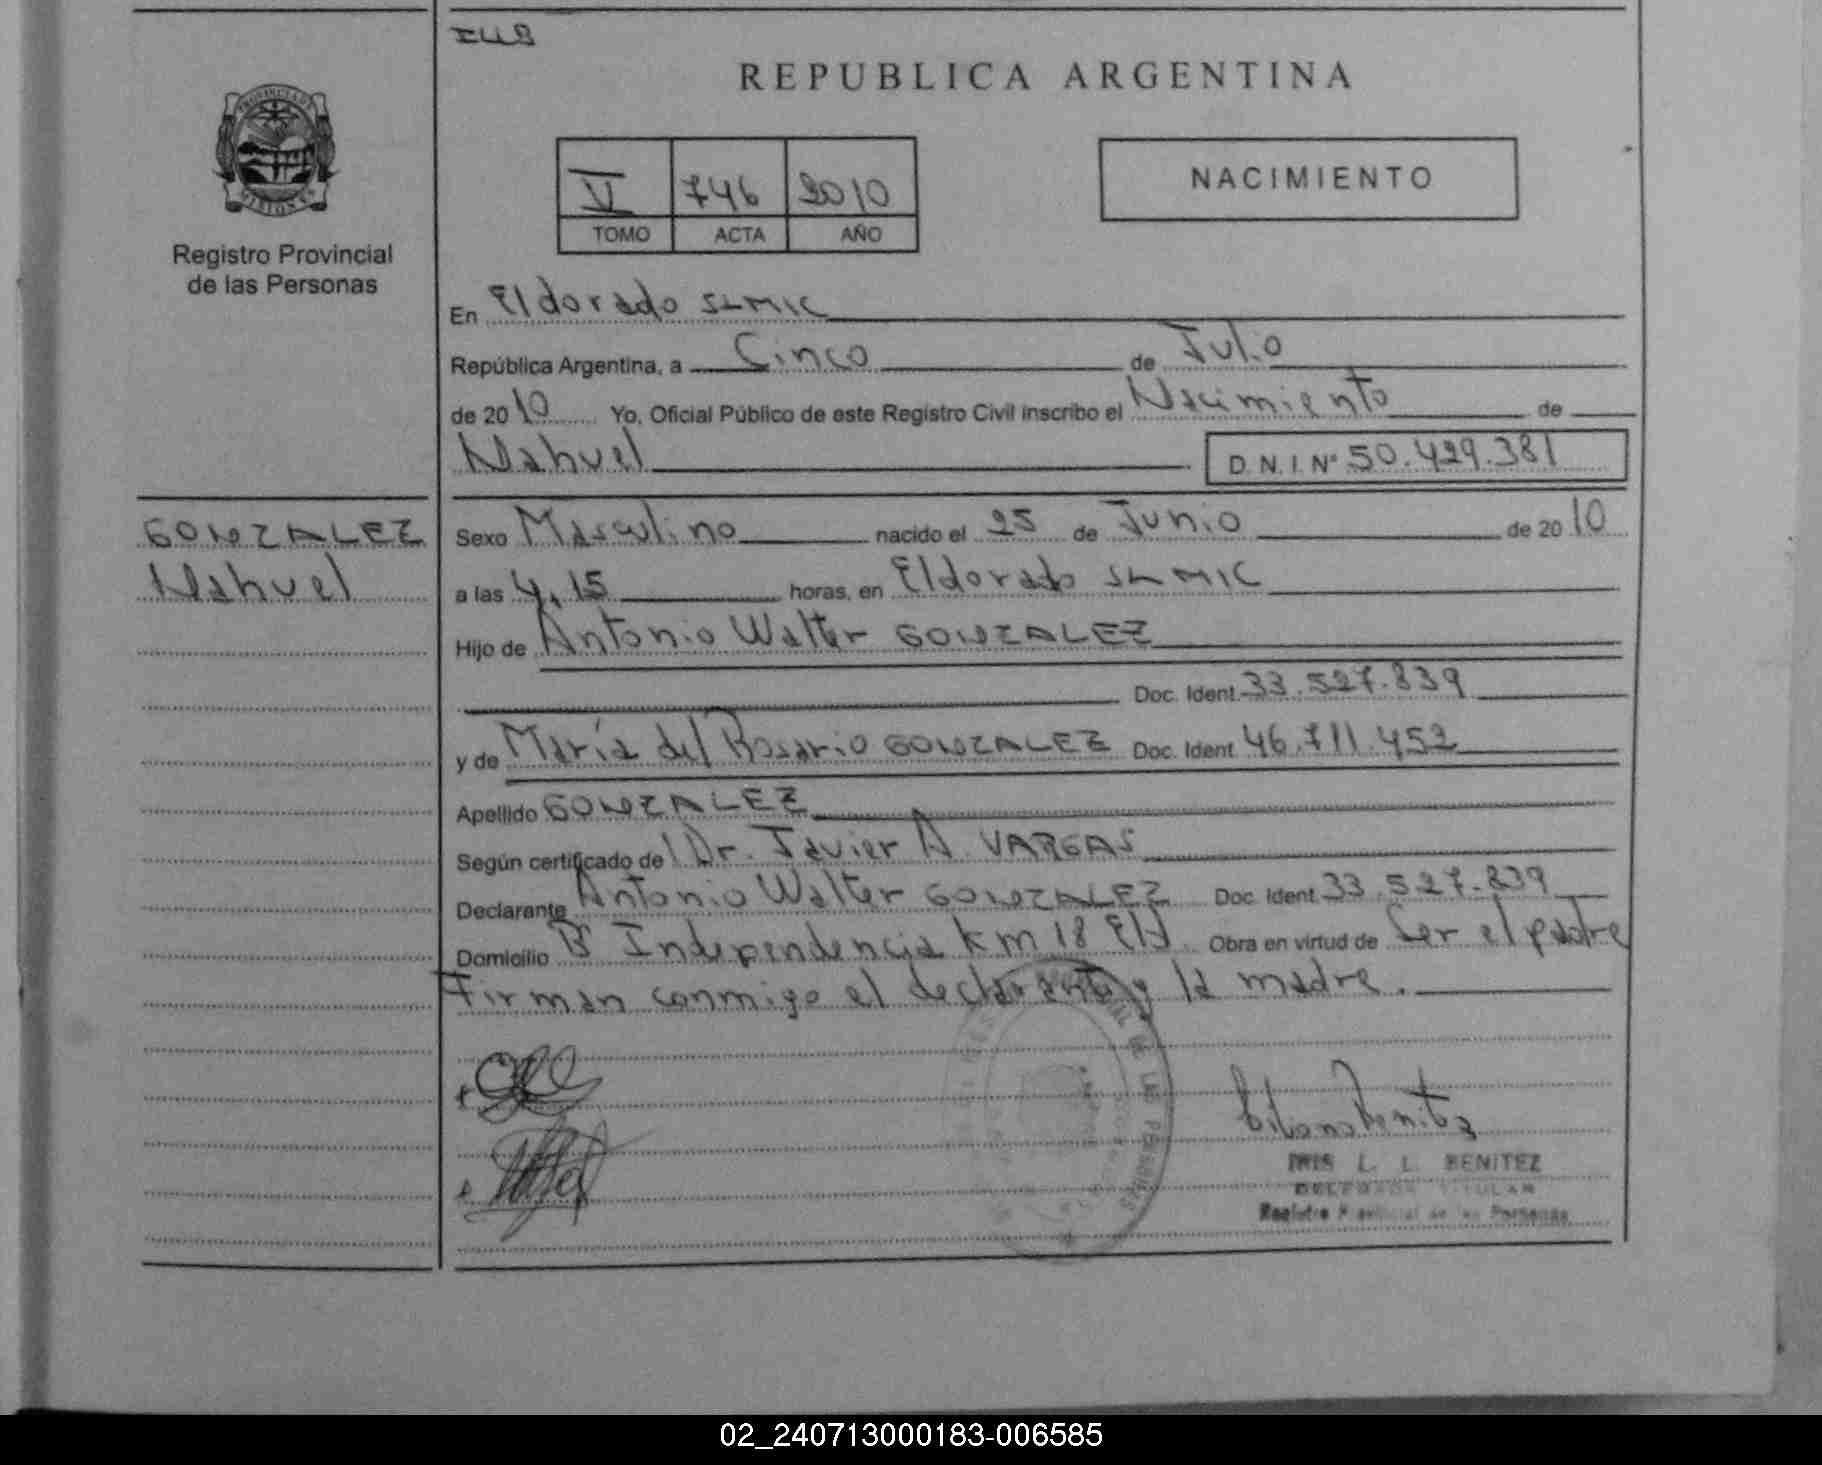 PROVINCIA DE
MISIONES
Registro Provincial
de las Personas
GONZALEZ
Nahuel
REPUBLICA ARGENTINA
VI 746 2010
TOMO ACTA AÑO
NACIMIENTO
En Eldorado
República Argentina, a Cinco de Julio
de 2010 Yo, Oficial Público de este Registro Civil inscribo el Nacimiento de
Nahuel D.N.I. Nº 50.429.381
Sexo Masculino nacido el 25 de Junio de 2010
a las 4,15 horas, en Eldorado
Hijo de Antonio Walter GONZALEZ
Doc. Ident. 33.527.839
y de María del Rosario GONZALEZ Doc. Ident. 46.711.452
Apellido GONZALEZ
Según certificado de Dr. Javier A. VARGAS
Declarante Antonio Walter GONZALEZ Doc. Ident. 33.527.839
Domicilio Bº Independencia km 18 Eld. Obra en virtud de Ser el padre
Firman conmigo el declarante y la madre.
IRIS L. L. BENITEZ
DELEGADA TITULAR
Registro Provincial de las Personas
02_240713000183-006585